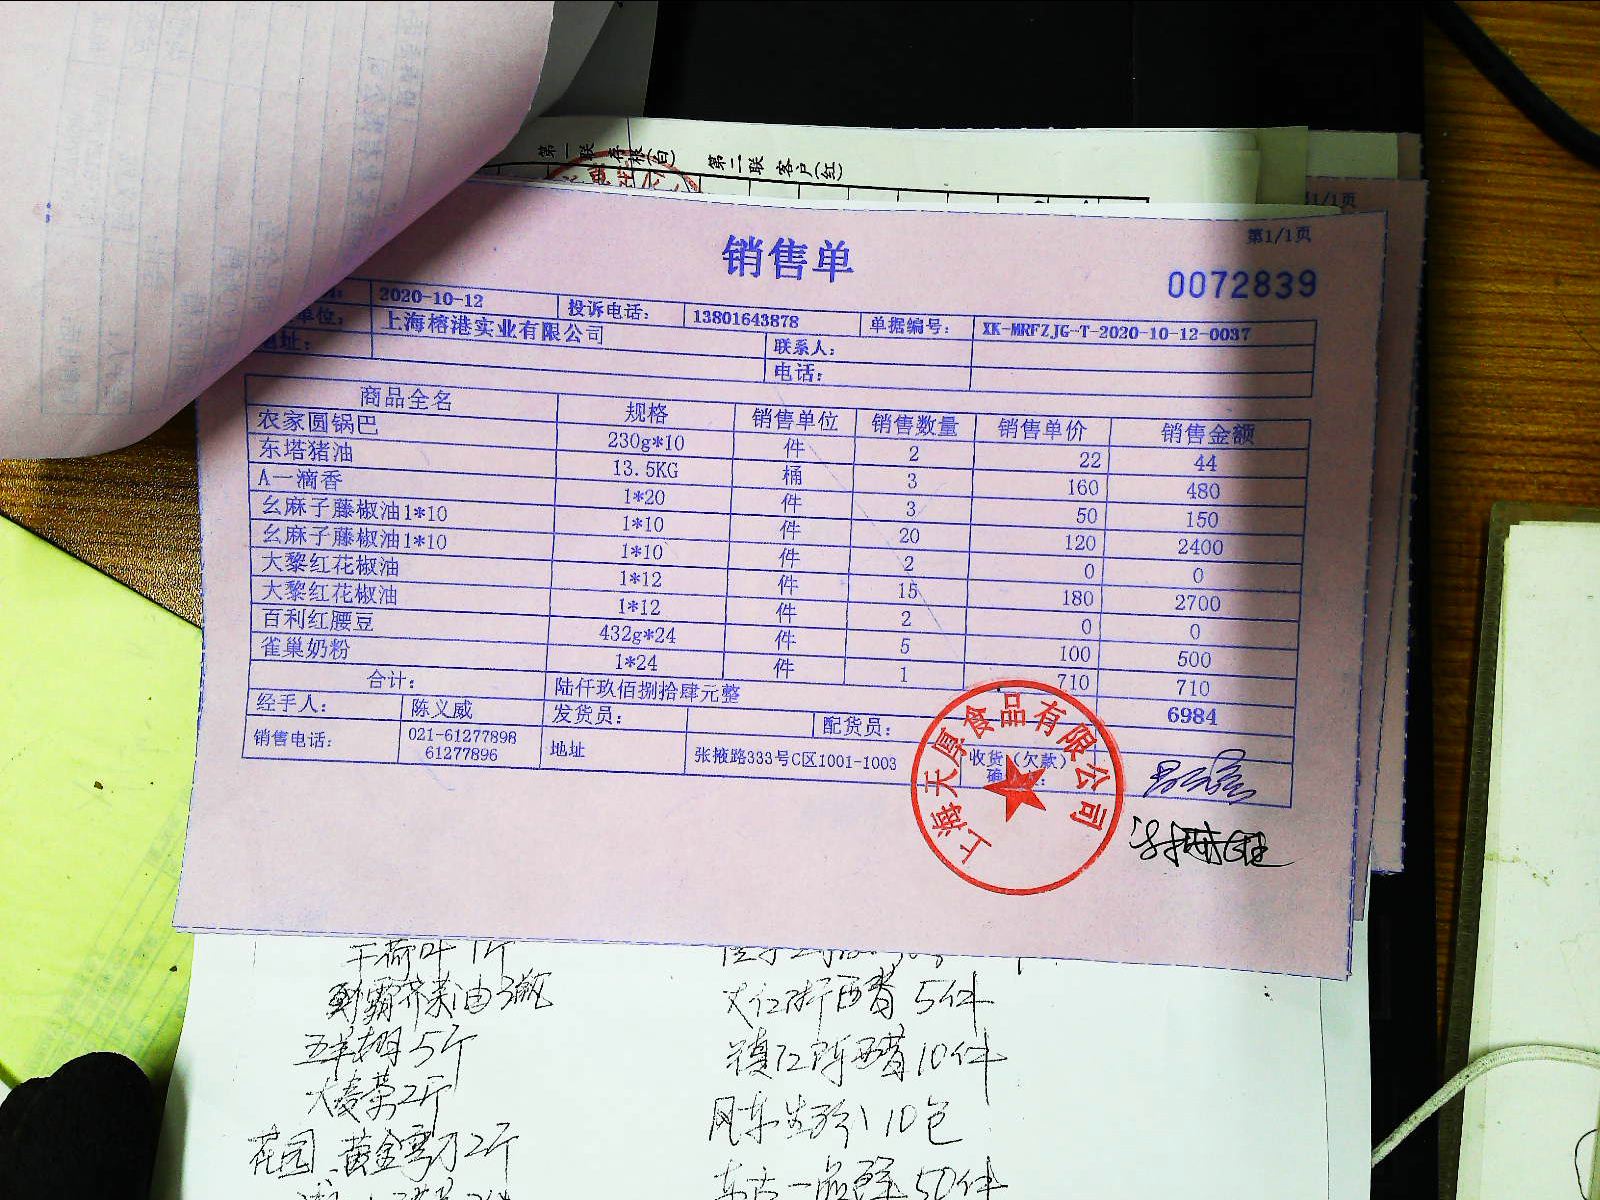 第一联 存根(白) 第二联 客户(红)
1/1页
第1/1页
销售单
0072839
2020-10-12 投诉电话: 13801643878 单据编号: XK-MRFZJG-T-2020-10-12-0037
单位: 上海榕港实业有限公司 联系人:
地址: 电话:
商品全名 规格 销售单位 销售数量 销售单价 销售金额
农家圆锅巴 230g*10 件 2 22 44
东塔猪油 13.5KG 桶 3 160 480
A一滴香 1*20 件 3 50 150
幺麻子藤椒油1*10 1*10 件 20 120 2400
幺麻子藤椒油1*10 1*10 件 2 0 0
大黎红花椒油 1*12 件 15 180 2700
大黎红花椒油 1*12 件 2 0 0
百利红腰豆 432g*24 件 5 100 500
雀巢奶粉 1*24 件 1 710 710
合计: 陆仟玖佰捌拾肆元整 6984
经手人: 陈义威 发货员: 配货员:
销售电话: 021-61277898 61277896 地址 张掖路333号C区1001-1003 收货(欠款)确
上海天厚食品有限公司
干荷叶 1斤
劲霸芥末油3瓶 大红浙西醋 5件
5斤 镇江陈醋 10件
大麦茶2斤 风车生粉 10包
花园 黄金 2斤 东古一品鲜 50件